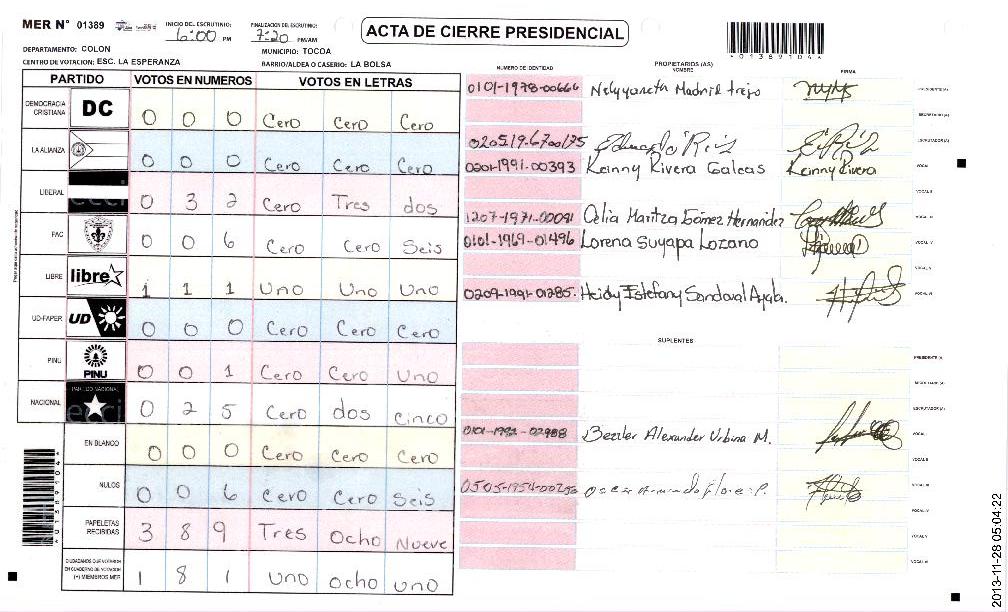 MER N° 01389
INICIO DEL ESCRUTINIO: 6:00 PM
FINALIZACION DEL ESCRUTINIO: 7:20 PM/AM
ACTA DE CIERRE PRESIDENCIAL
*01389104*
DEPARTAMENTO: COLON
MUNICIPIO: TOCOA
CENTRO DE VOTACION: ESC. LA ESPERANZA
BARRIO/ALDEA O CASERIO: LA BOLSA
PARTIDO VOTOS EN NUMEROS VOTOS EN LETRAS
DEMOCRACIA CRISTIANA DC 0 0 0 Cero Cero Cero
LA ALIANZA 0 0 0 Cero Cero Cero
LIBERAL 0 3 2 Cero Tres dos
FAC 0 0 6 Cero Cero Seis
LIBRE libre 1 1 1 Uno Uno Uno
UD-FAPER UD 0 0 0 Cero Cero Cero
PINU PINU 0 0 1 Cero Cero Uno
NACIONAL PARTIDO NACIONAL 0 2 5 Cero dos Cinco
EN BLANCO 0 0 0 Cero Cero Cero
NULOS 0 0 6 Cero Cero Seis
PAPELETAS RECIBIDAS 3 8 9 Tres Ocho Nueve
CIUDADANOS QUE VOTARON EN CUADERNO DE VOTACION (+) MIEMBROS MER 1 8 1 Uno Ocho uno
*01389104*
NUMERO DE IDENTIDAD PROPIETARIOS (AS) NOMBRE FIRMA
0101-1978-00666 Nelyyaneta Madrid trejo PRESIDENTE (A)
SECRETARIO (A)
Eduardo Ruiz ESCRUTADOR (A)
0201-1991-00393 Keinny Rivera Galeas Keinny Rivera VOCAL I
VOCAL II
1207-1971-00091 Celia Maritza Gómez Hernandez VOCAL III
0101-1969-01496 Lorena Suyapa Lozano VOCAL IV
VOCAL V
0209-1991-01285 Heidy Estefany Sandoval Ayala. VOCAL VI
SUPLENTES
PRESIDENTE (A)
SECRETARIO (A)
ESCRUTADOR (A)
0101-1992-02988 Bezzler Alexander Urbina M. VOCAL I
VOCAL II
Oscar Armando Flores P. VOCAL III
VOCAL IV
VOCAL V
VOCAL VI
2013-11-28 05:04:22